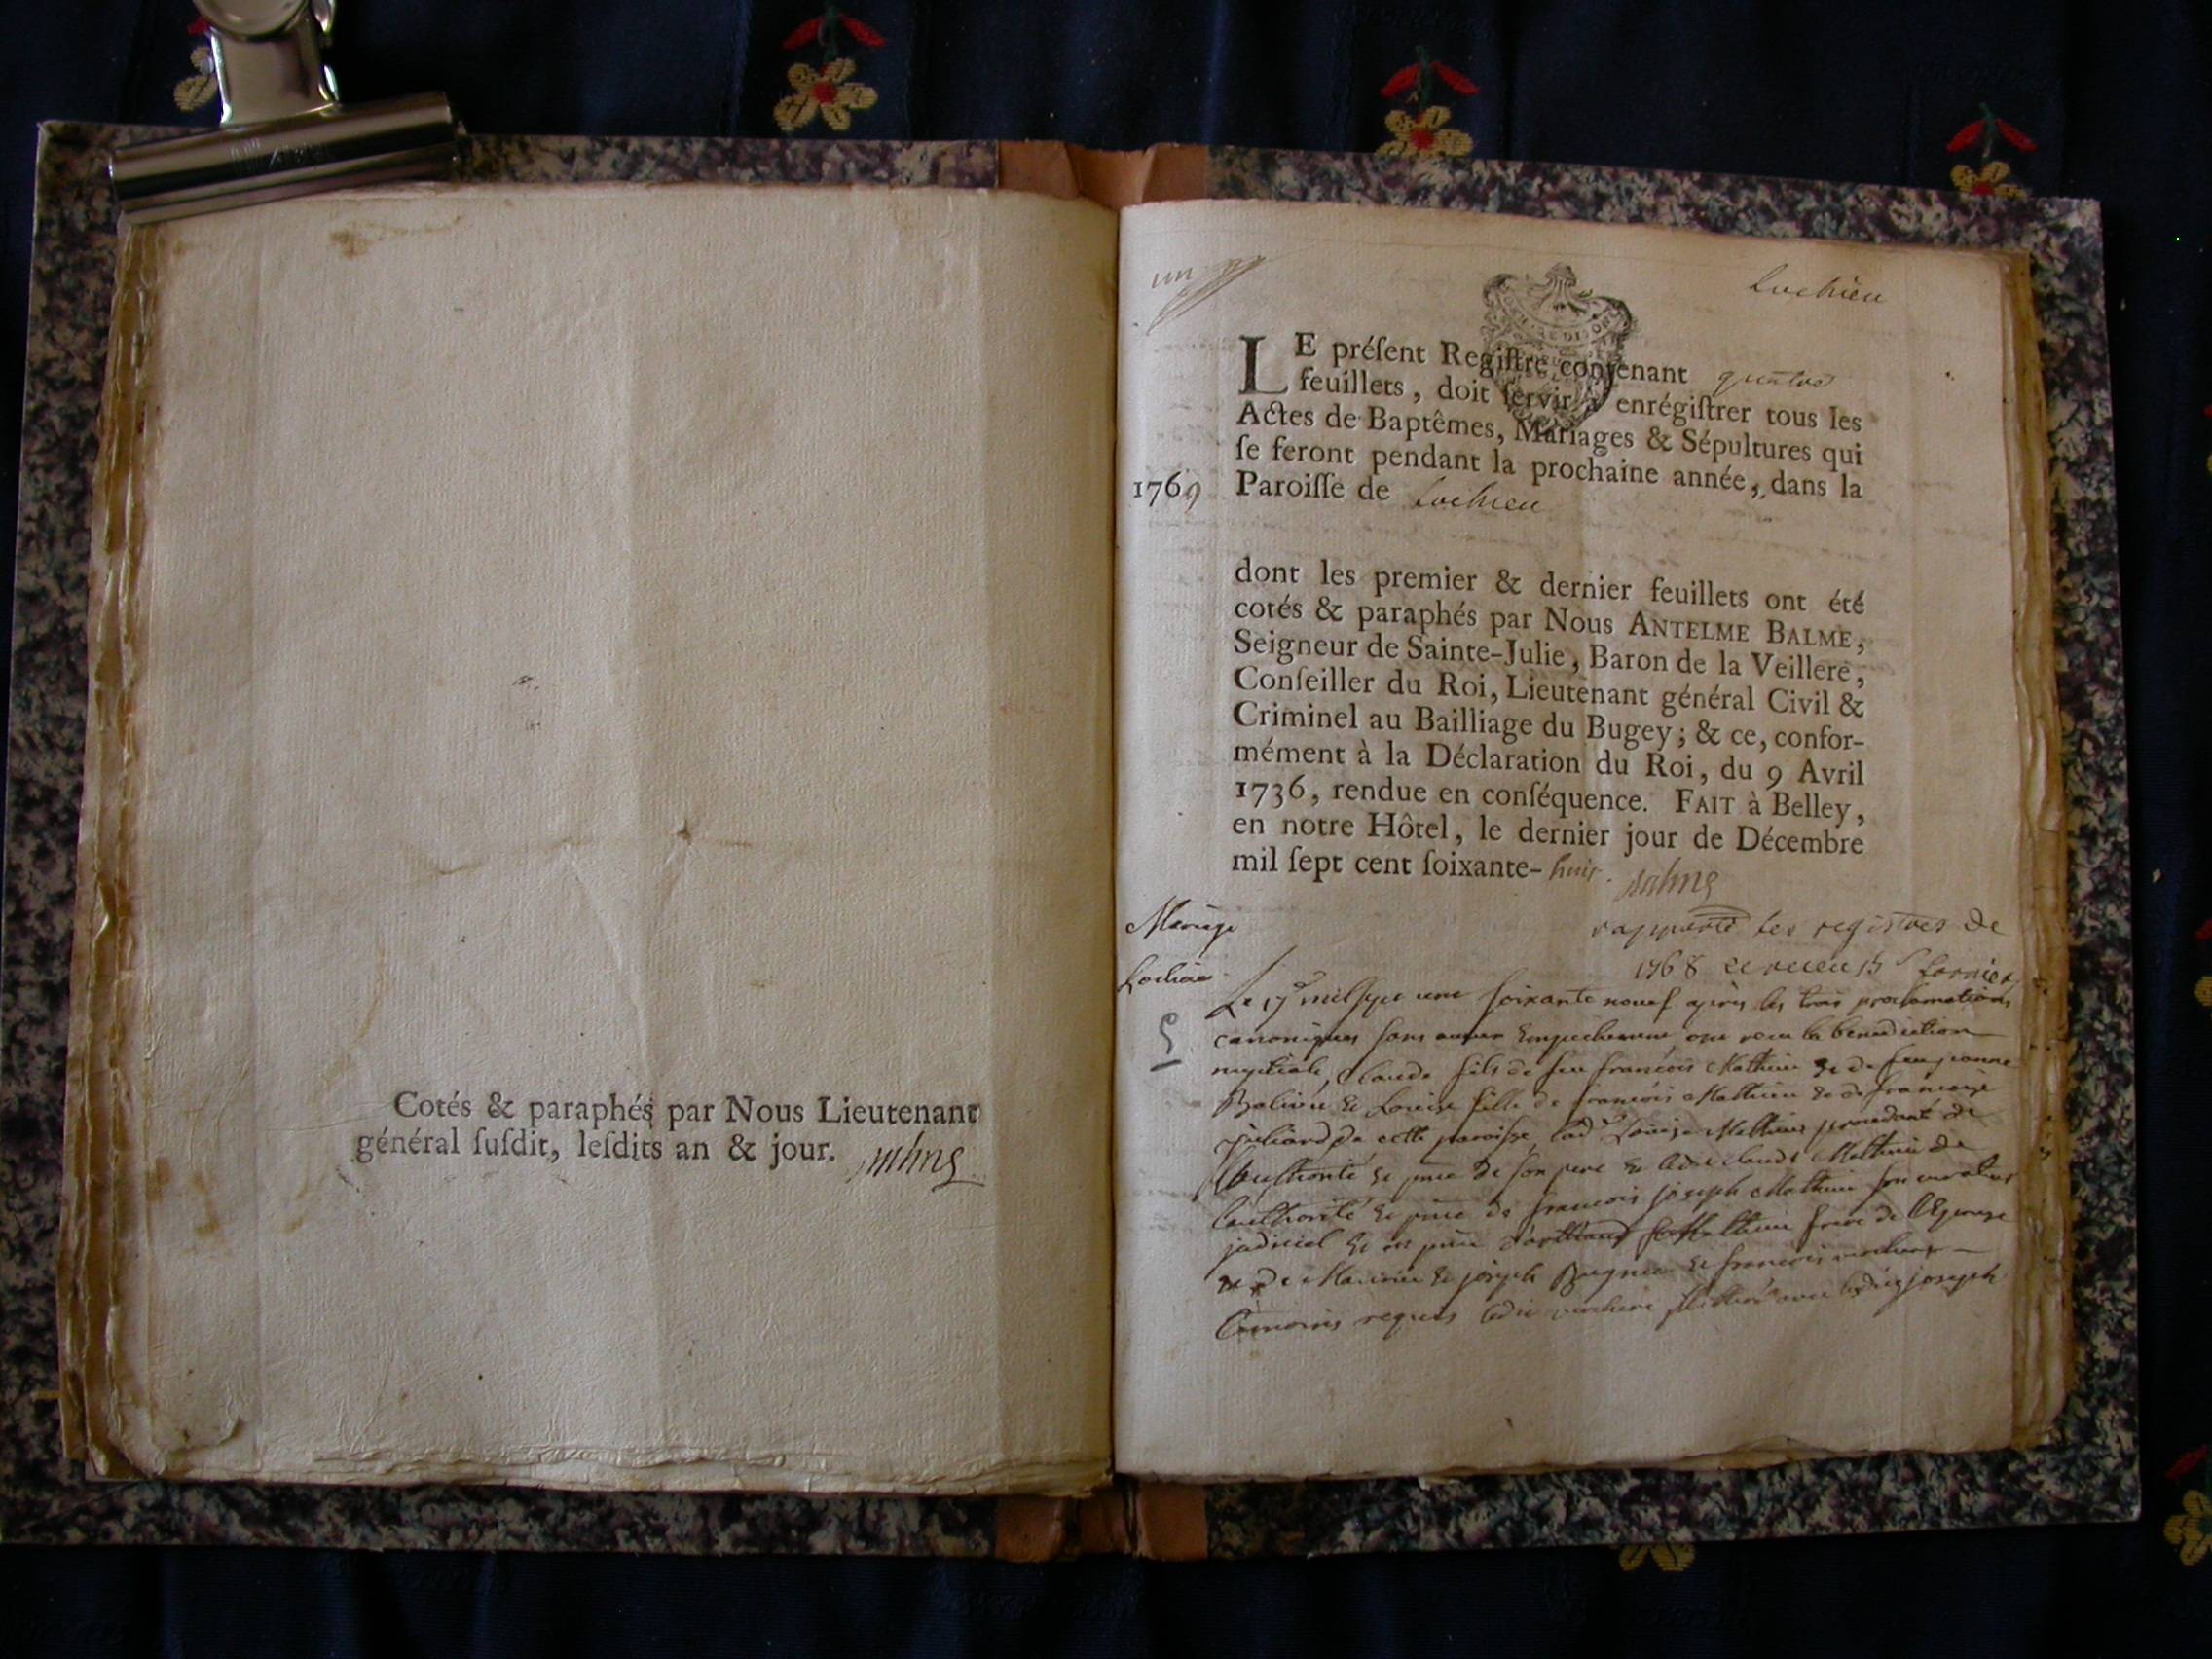 Cotés & paraphés par Nous Lieutenant
général ſuſdit, leſdits an & jour. Balme
un
Lochieu
LE préſent Regiſtre contenant quatre
feuillets, doit ſervir à enrégiſtrer tous les
Actes de Baptêmes, Mariages & Sépultures qui
ſe feront pendant la prochaine année, dans la
1769 Paroiſſe de Lochieu
dont les premier & dernier feuillets ont été
cotés & paraphés par Nous ANTELME BALME,
Seigneur de Sainte-Julie, Baron de la Veillere,
Conſeiller du Roi, Lieutenant général Civil &
Criminel au Bailliage du Bugey; & ce, confor-
mément à la Déclaration du Roi, du 9 Avril
1736, rendue en conſéquence. FAIT à Belley,
en notre Hôtel, le dernier jour de Décembre
mil ſept cent ſoixante-huit. Balme
Mariage
rapporté les registres de
1768
Lochieu
Le 17 mil sept cent soixante neuf après les trois proclamations
canoniques sans aucun empechement ont recu la benediction
nuptiale, Claude fils de feu françois Mathieu et de feu
et Louise fille de françois Mathieu et de françoise
Juliard de cette paroisse Louise Mathieu procedant de
l'authorité et de son pere et Claude Mathieu de
l'authorité et de françois joseph Mathieu son curateur
judiciel et en Mathieu frere de l'Epouse
de et joseph et francois
temoins requis joseph